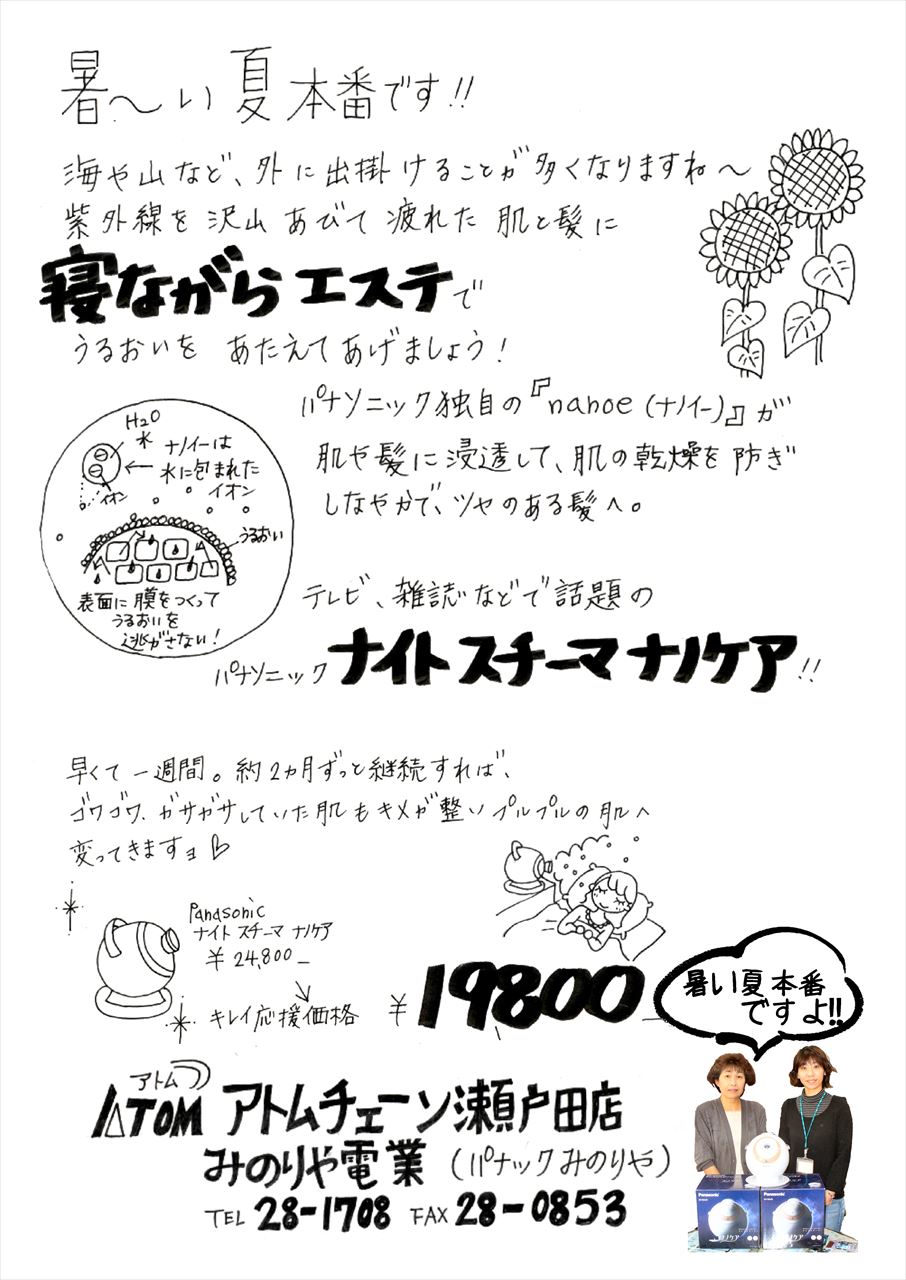 暑〜い夏本番です!!
海や山など、外に出掛けることが多くなりますね〜
紫外線を沢山あびて疲れた肌と髪に
寝ながらエステで
うるおいをあたえてあげましょう!
パナソニック独自の『nanoe(ナノイー)』が
肌や髪に浸透して、肌の乾燥を防ぎ
しなやかで、ツヤのある髪へ。
H2O
水
ナノイーは
水に包まれた
イオン
イオン
うるおい
表面に膜をつくって
うるおいを
逃がさない!
テレビ、雑誌などで話題の
パナソニックナイトスチーマナノケア!!
早くて一週間。約2カ月ずっと継続すれば、
ゴワゴワ、ガサガサしていた肌もキメが整いプルプルの肌へ
変ってきますョ♡
Panasonic
ナイトスチーマ ナノケア
¥24,800-
キレイ応援価格 ¥19800-
暑い夏本番
ですよ!!
アトム
ATOM アトムチェーン瀬戸田店
みのりや電業(パナックみのりや)
TEL 28-1708 FAX 28-0853
Panasonic
Panasonic
ナノケア